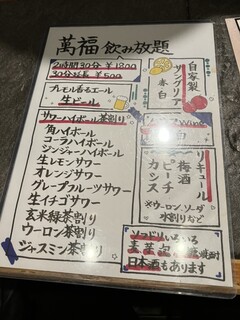 萬福 飲み放題
2時間30分 ¥1800
30分延長 ¥500
プレモル香るエール
生ビール
サワーハイボール茶割り
角ハイボール
コーラハイボール
ジンジャーハイボール
生レモンサワー
オレンジサワー
グレープフルーツサワー
生イチゴサワー
玄米緑茶割り
ウーロン茶割り
ジャスミン茶割り
自家製
サングリア
赤 白
リキュール
梅酒
ピーチ
カシス
※ウーロン ソーダ
水割りなど
いろいろ
日本酒もあります